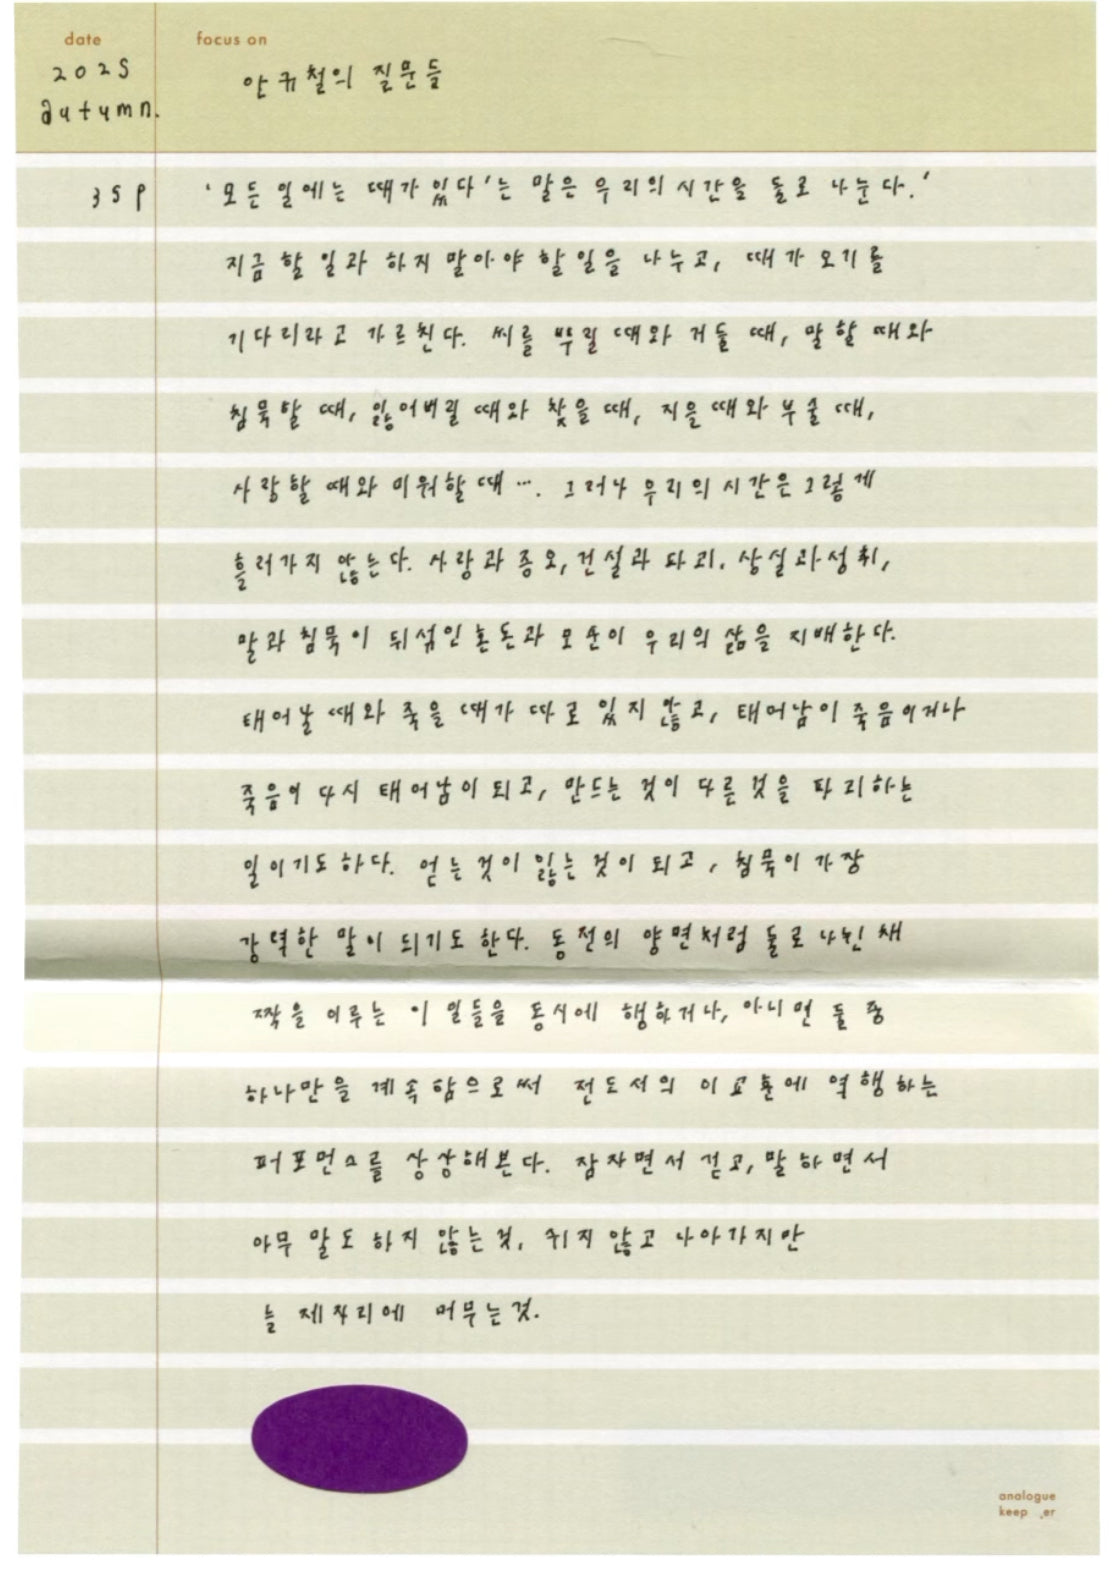 date
focus on
2025
autumn.
안규철의 질문들
35p
'모든 일에는 때가 있다'는 말은 우리의 시간을 둘로 나눈다.'
지금 할 일과 하지 말아야 할 일을 나누고, 때가 오기를
기다리라고 가르친다. 씨를 뿌릴 때와 거둘 때, 말할 때와
침묵할 때, 잃어버릴 때와 찾을 때, 지을 때와 부술 때,
사랑할 때와 미워할 때 …. 그러나 우리의 시간은 그렇게
흘러가지 않는다. 사랑과 증오, 건설과 파괴, 상실과 성취,
말과 침묵이 뒤섞인 혼돈과 모순이 우리의 삶을 지배한다.
태어날 때와 죽을 때가 따로 있지 않고, 태어남이 죽음이거나
죽음이 다시 태어남이 되고, 만드는 것이 다른 것을 파괴하는
일이기도 하다. 얻는 것이 잃는 것이 되고, 침묵이 가장
강력한 말이 되기도 한다. 동전의 양면처럼 둘로 나뉜 채
짝을 이루는 이 일들을 동시에 행하거나, 아니면 둘 중
하나만을 계속함으로써 전도서의 이 교훈에 역행하는
퍼포먼스를 상상해본다. 잠자면서 걷고, 말하면서
아무 말도 하지 않는 것, 쉬지 않고 나아가지만
늘 제자리에 머무는 것.
analogue
keep er